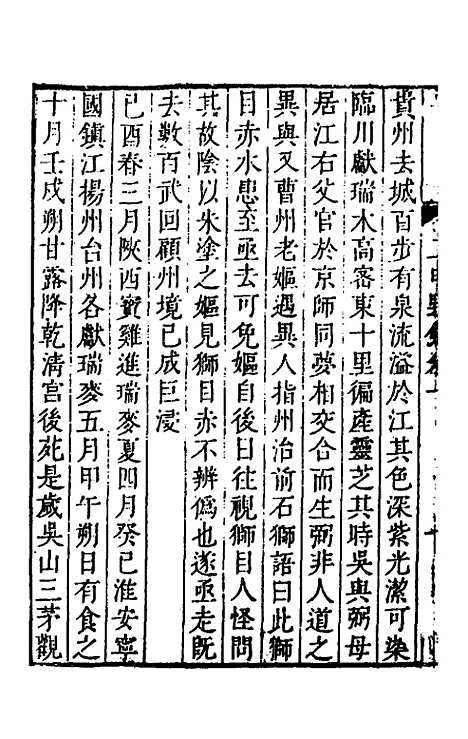 貴州去城百步有泉流溢於江其色深紫光潔可染
臨川獻瑞木高密東十里徧產靈芝其時吳與弼母
居江右父官於京師同夢相交合而生弼非人道之
異與又曹州老嫗遇異人指州治前石獅語曰此獅
目赤水患至亟去可免嫗自後日往視獅目人怪問
其故陰以朱塗之嫗見獅目赤不辨僞也遂亟走旣
去數百武回顧州境已成巨浸
已酉春三月陝西寶雞進瑞麥夏四月癸巳淮安寧
國鎮江揚州台州各獻瑞麥五月甲午朔日有食之
十月壬戌朔甘露降乾清宮後苑是歲吳山三茅觀